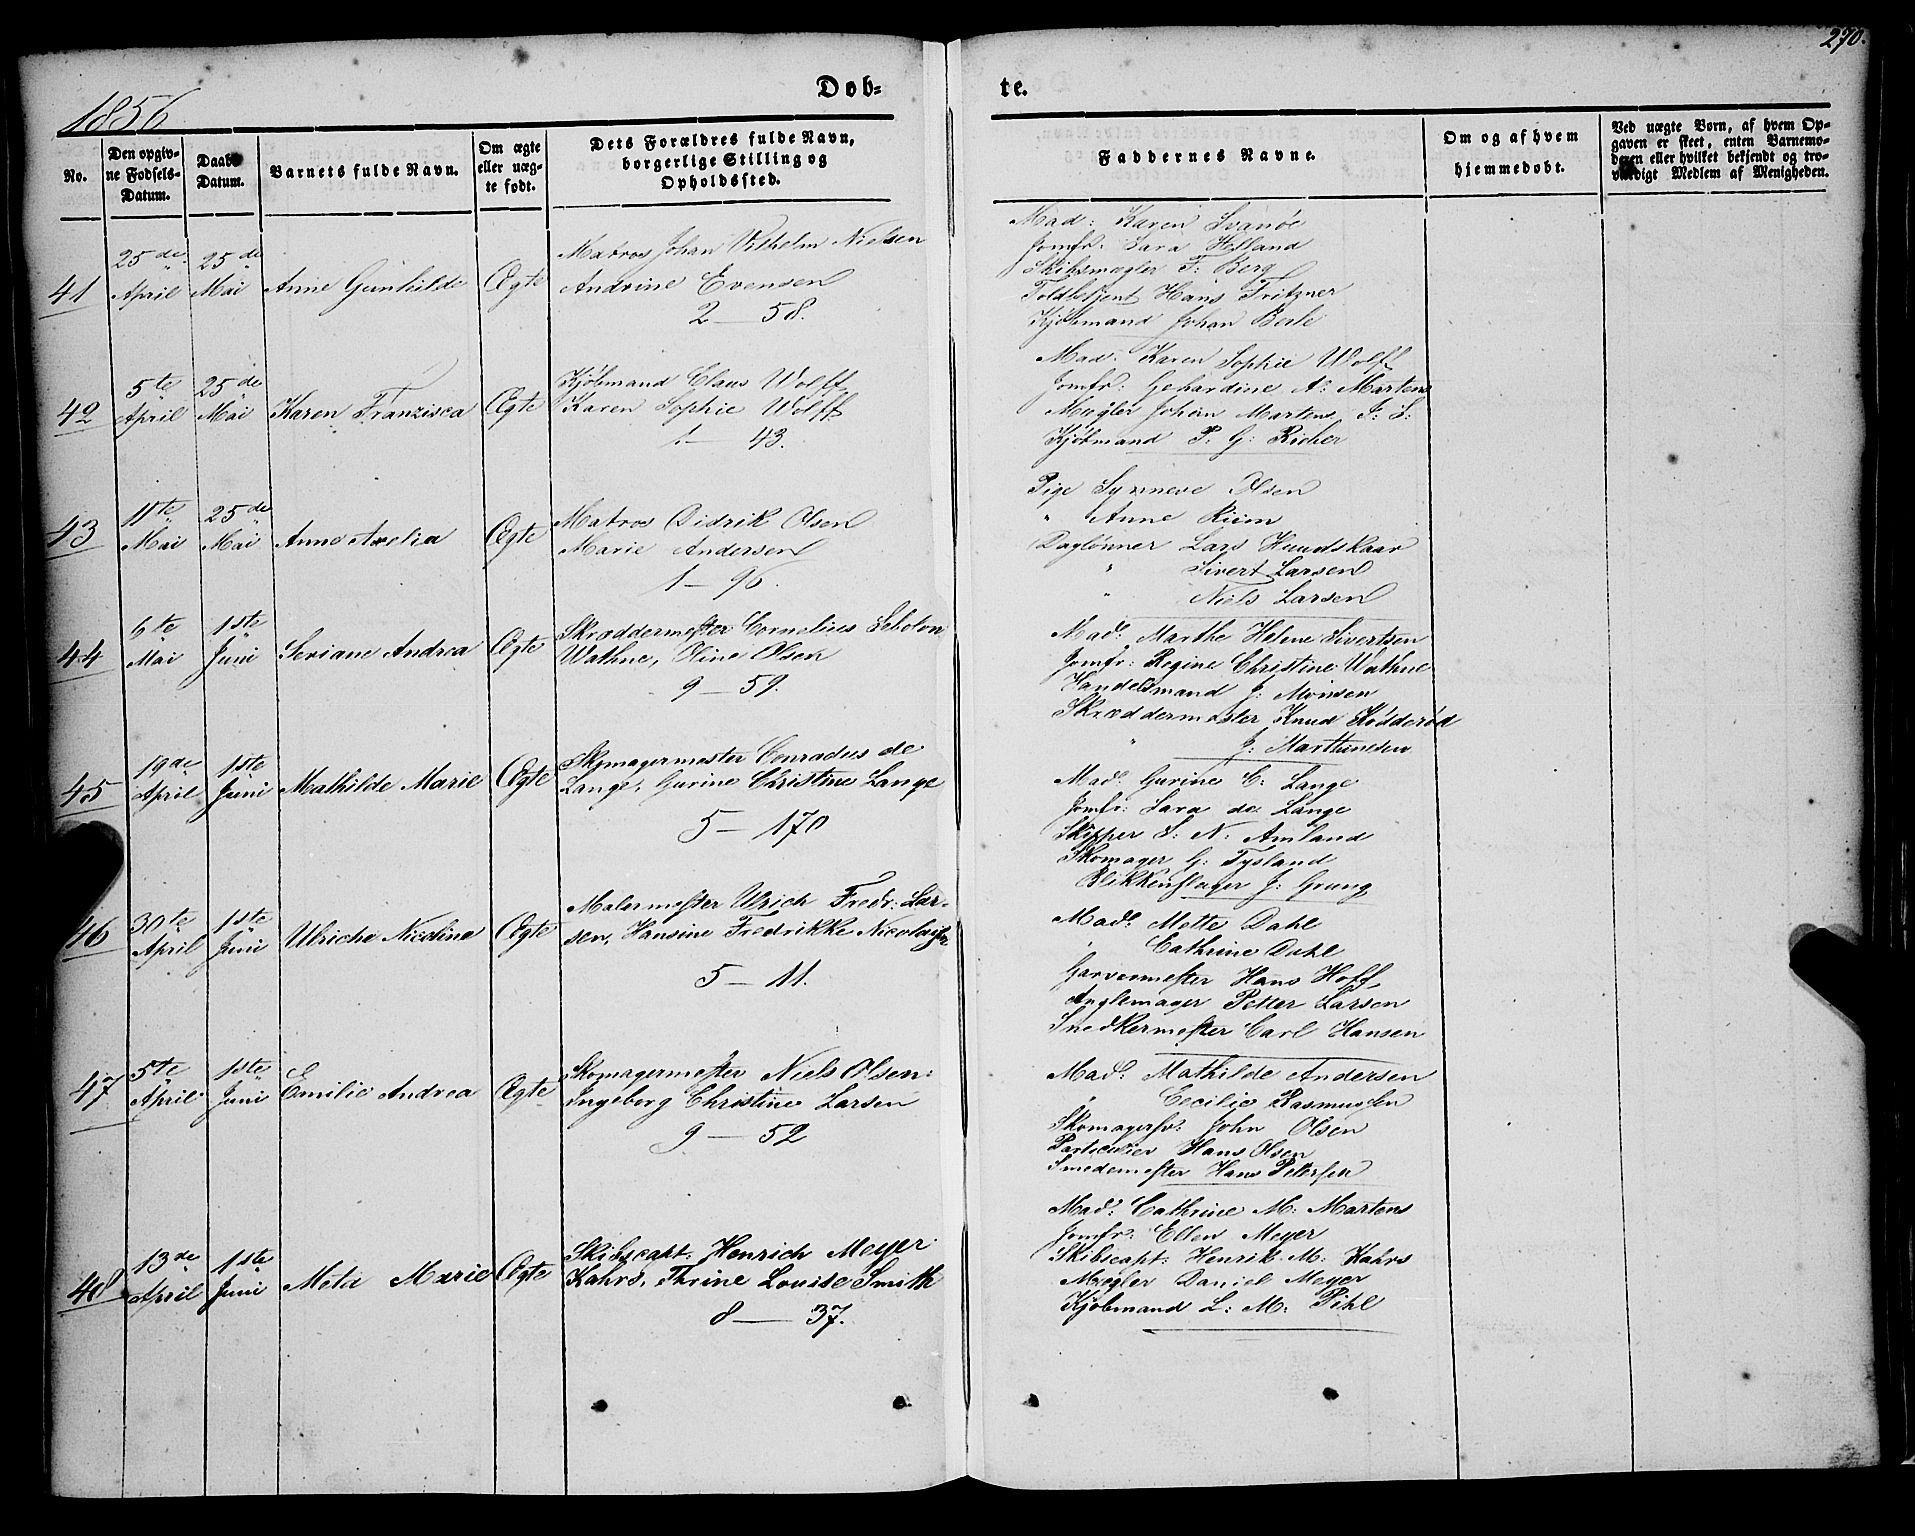 270.
1856
Døb-
te.
No.
Den opgiv-
ne Fødsels-
Datum.
Daabs
Datum.
Barnets fulde Navn.
Om ægte
eller uæg-
te født.
Dets Forældres fulde Navn,
borgerlige Stilling og
Opholdssted.
Faddernes Navne.
Om og af hvem
hjemmedøbt.
Ved uægte Børn, af hvem Op-
gaven er skeet, enten Barnemo-
deren eller hvilket bekjendt og tro-
værdigt Medlem af Menigheden.
41
25de
April
25de
Mai
Anne Gunhilde
Ægte
Matros Johan Vilhelm Nielsen
Andrine Evensen
2 — 58.
Mad: Karen Svanöe
Jomfr: Sara Helland
Skibsmægler F: Berg
Toldbetjent Hans Fritzner
Kjöbmand Johan Berle
42
5te
April
25de
Mai
Karen Franzisca
Ægte
Kjöbmand Claus Wolff
Karen Sophie Wolff
1 — 43.
Mad. Karen Sophie Wolff
Jomfr: Gehardine A: Martens
Mægler Johan Martens J: S:
Kjöbmand P: G: Richer
43
11te
Mai
25de
Mai
Anne Axelia
Ægte
Matros Didrik Olsen
Marie Andersen
1 — 96.
Pige Synneve Olsen
" Anne Riim
Daglönner Lars Hundskaar
" Sivert Larsen
" Niels Larsen
44
6te
Mai
1ste
Juni
Seriane Andrea
Ægte
Skræddermester Cornelius
Wathne, Oline Olsen
9 — 59.
Mad. Marthe Helene Sivertsen
Jomfr: Regine Christine Wathne
Handelsmand J: Monsen
Skræddermester KnudKödderöd
" J: Marthinesen
45
19de
April
1ste
Juni
Mathilde Marie
Ægte
Skomagermester Conradus de
Lange, Gurine Christine Lange
5 — 170
Mad. Gurine C: Lange
Jomfr: Sara de Lange
Skipper S: N: Amland
Skomager G: Tysland
Blikkenslager J: Grung
46
30te
April
1ste
Juni
Ulriche Nicoline
Ægte
Malermester Ulrich Fredr: Lar-
sen, Hansine Fredrikke Nicolaysen
5 — 11.
Mad. Mette Dahl
" Cathrine Dahl
Garvermester Hans Hoff
Anglemager Petter Larsen
Snedkermester Carl Hansen
47
5te
April
1ste
Juni
Emilie Andrea
Ægte
Skomagermester Niels Olsen:
Ingeborg Christine Larsen
9 — 52
Mad. Mathilde Andersen
" Cecilie Rasmussen
Skomagersv: John Olsen
Particulier Hans Olsen
Smedemester Hans Pettersen
48
13de
April
1ste
Juni
Meta Marie
Ægte
Skibscapt: Henrich Meyer
Kahrs, Thrine Louise Smith
8 — 37.
Mad. Cathrine M: Martens
Jomfr: Ellen Meyer
Skibscapt: Henrik M: Kahrs
Mægler Daniel Meyer
Kjöbmand L: M: Pihl